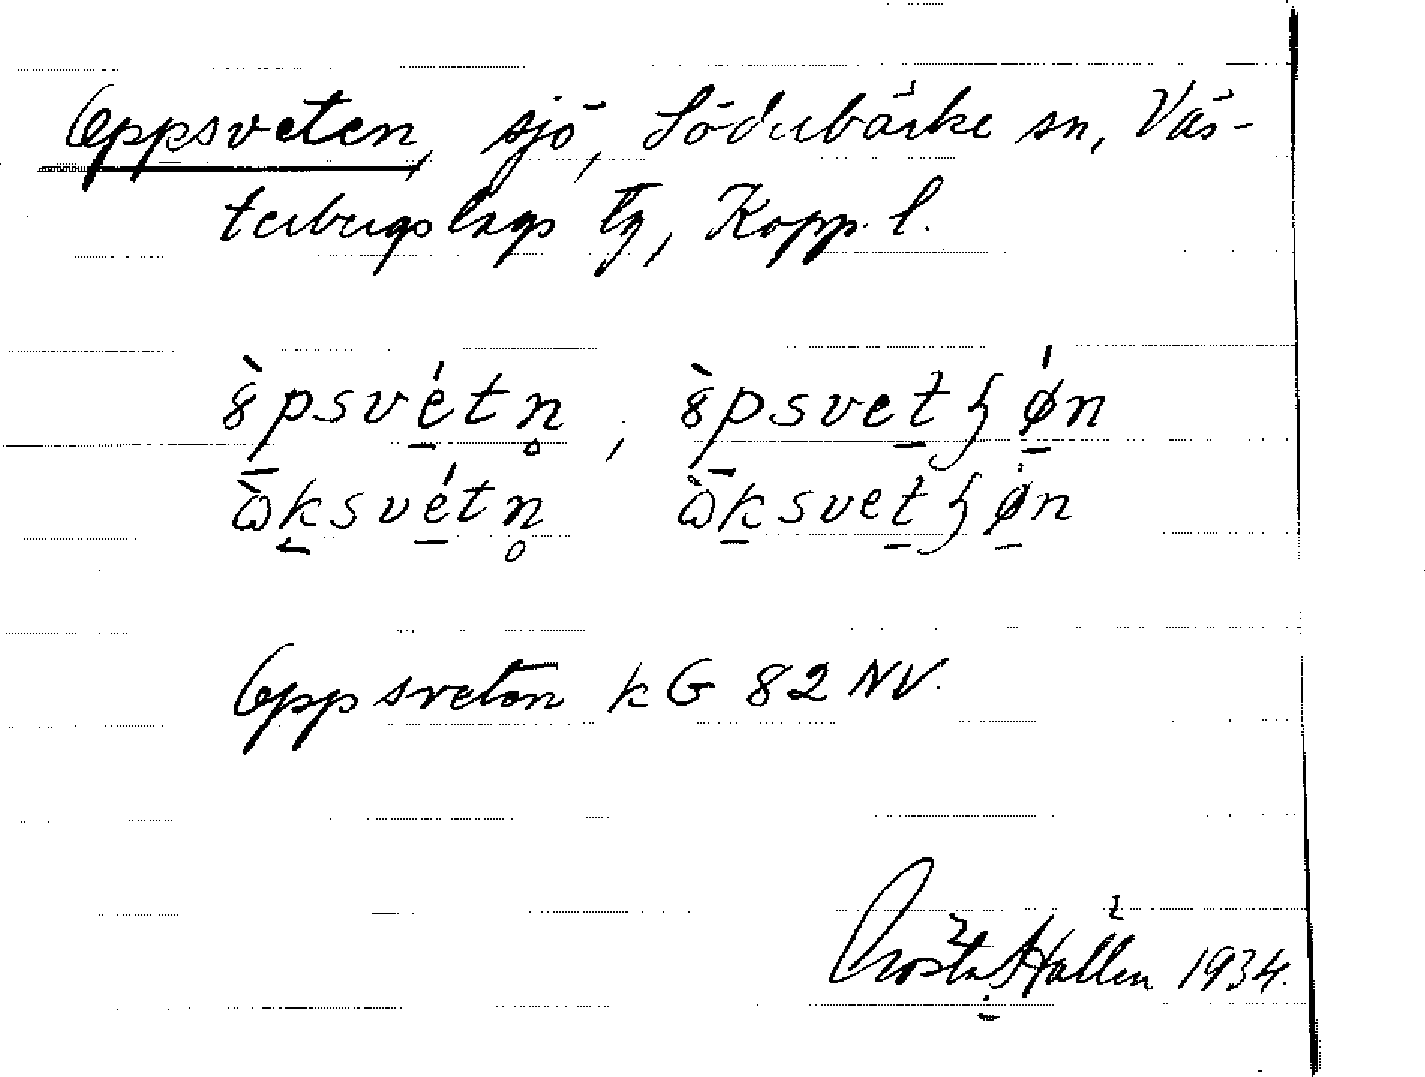 Oppsveten, sjö, Söderbärke sn, Väs-
terbergslags tg, Kopp. l.
ȣ̀psvétn̥, ȣ̀psvetʃǿn
ὼksvétn̥ ὼksvetʃøn
Oppsveten kG 82 NV.
Gösta Hallén 1934.